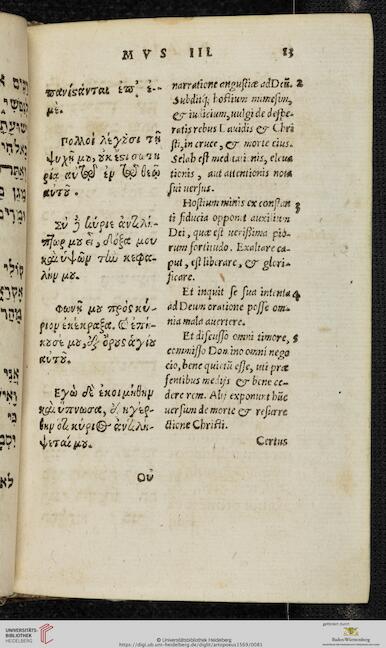 MVS III. 83
πανίσανται ἐπ' ἐ-
μέ.
Πολλοὶ λέγουσι τῇ
ψυχῇ μου, οὐκ ἔστι σωτη
ρία αὐτῷ ἐν τῷ θεῷ
αὐτοῦ.
Σὺ δὲ κύριε ἀντιλή-
πτωρ μου εἶ, δόξα μου
καὶ ὑψῶν τὴν κεφα-
λήν μου.
Φωνῇ μου πρὸς κύ-
ριον ἐκέκραξα, καὶ ἐπή-
κουσέ μου, ἐξ ὄρους ἁγίου
αὐτοῦ.
Ἐγὼ δὲ ἐκοιμήθην
καὶ ὕπνωσα, ἐξηγέρ-
θην ὅτι κύριος ἀντιλή-
ψεταί μου.
Οὐ
narratione angustiæ ad Deũ. 2
Subditq; hostium numerũm,
& iudicium, vulgi de despe-
ratis rebus Dauidis & Chri
sti, in cruce, & morte eius.
Selah est meditantis, eleua
tionis, aut attentionis nota
sui versus.
Hostium minis ex constan 3
ti fiducia opponit auxilium
Dei, quæ est uerißima pio-
rum fortitudo. Exaltare ca-
put, est liberare, & glori-
ficare.
Et inquit se sua intenta 4
ad Deum oratione posse om-
nia mala auertere.
Et discusso omni timore, 5
commisso Domino omni nego
cio, bene quietũ esse, uti præ
sentibus medijs & bene ce-
dere rem. Alij exponunt hũc
uersum de morte & resurre
ctione Christi.
Certus
UNIVERSITÄTS-
BIBLIOTHEK
HEIDELBERG
© Universitätsbibliothek Heidelberg
https://digi.ub.uni-heidelberg.de/diglit/artopoeus1569/0081
gefördert durch
Baden-Württemberg